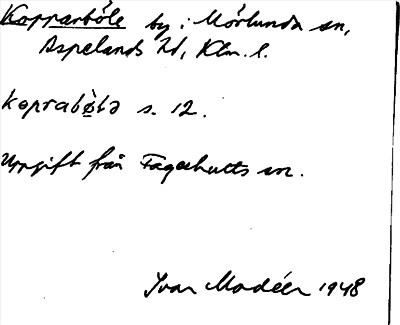 Kopparböle by i Mörlunda sn,
Aspelands hd, Klm. l.
koprabø̀lə s. 12.
Uppgift från Fagerhults sn.
Ivar Modéer 1948